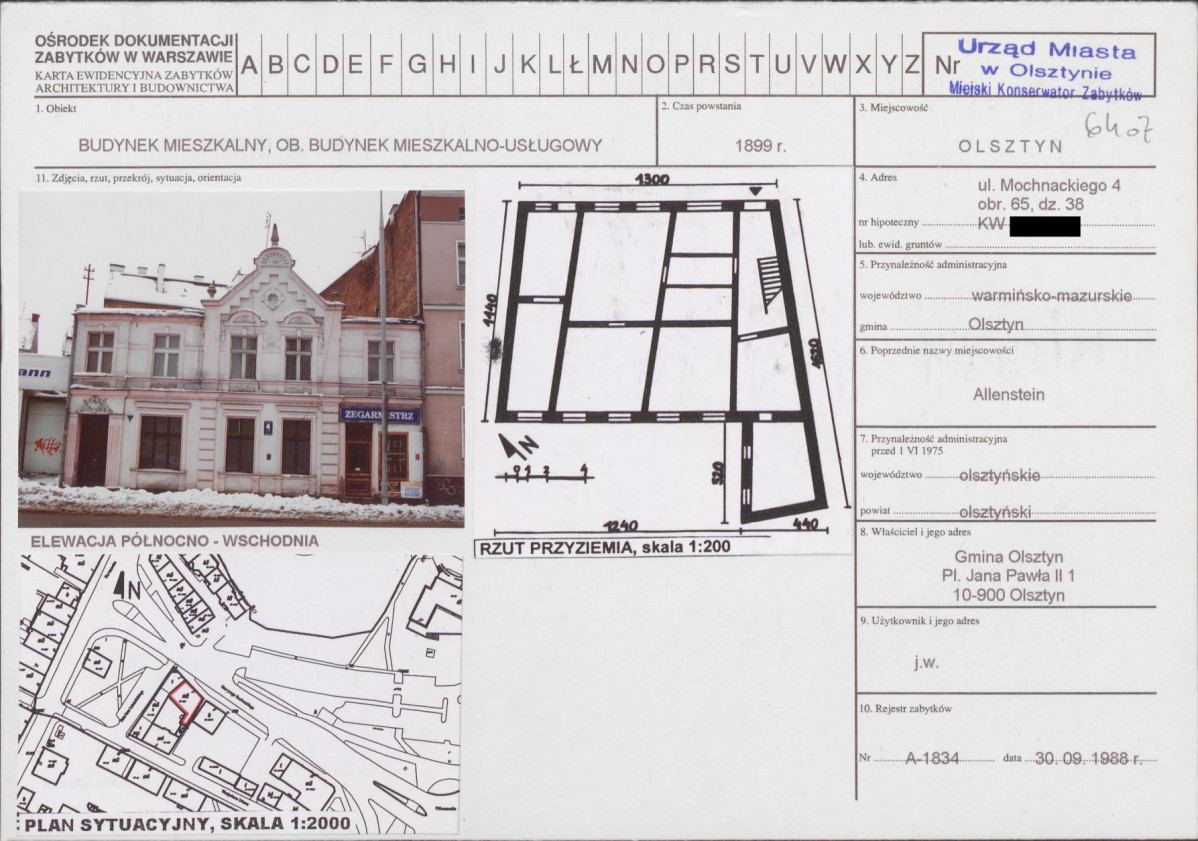 OŚRODEK DOKUMENTACJI
ZABYTKÓW W WARSZAWIE
KARTA EWIDENCYJNA ZABYTKÓW
ARCHITEKTURY I BUDOWNICTWA
A B C D E F G H I J K L Ł M N O P R S T U V W X Y Z Nr
Urząd Miasta
w Olsztynie
Miejski Konserwator Zabytków
1. Obiekt
BUDYNEK MIESZKALNY, OB. BUDYNEK MIESZKALNO-USŁUGOWY
2. Czas powstania
1899 r.
3. Miejscowość
6407
OLSZTYN
11. Zdjęcia, rzut, przekrój, sytuacja, orientacja
ann
ZEGARMISTRZ
4
ELEWACJA PÓŁNOCNO - WSCHODNIA
1300
1140
1620
N
0 1 2 4
520
1240
440
RZUT PRZYZIEMIA, skala 1:200
N
PLAN SYTUACYJNY, SKALA 1:2000
4. Adres
ul. Mochnackiego 4
obr. 65, dz. 38
nr hipoteczny KW
lub. ewid. gruntów
5. Przynależność administracyjna
województwo warmińsko-mazurskie
gmina Olsztyn
6. Poprzednie nazwy miejscowości
Allenstein
7. Przynależność administracyjna
przed 1 VI 1975
województwo olsztyńskie
powiat olsztyński
8. Właściciel i jego adres
Gmina Olsztyn
Pl. Jana Pawła II 1
10-900 Olsztyn
9. Użytkownik i jego adres
j.w.
10. Rejestr zabytków
Nr A-1834 data 30. 09. 1988 r.